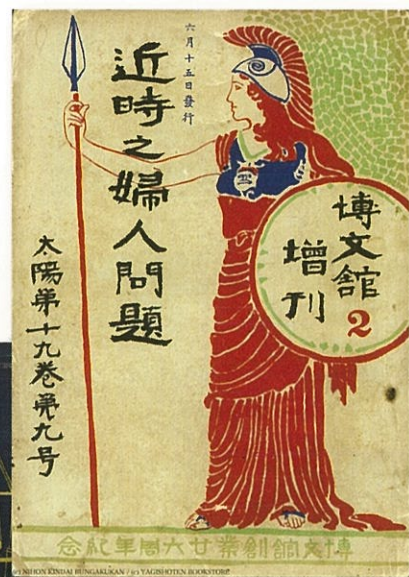 博文館2
增刊
六月十五日發行
近時之婦人問題
太陽第十九卷第九号
博文館創業廿六周年紀念
(c) NIHON KINDAI BUNGAKUKAN / (c) YAGISHOTEN BOOKSTORE